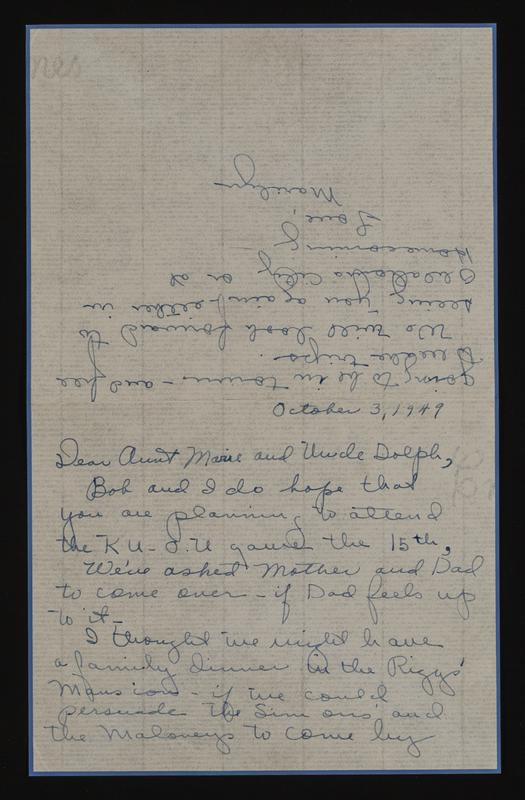 October 3, 1949
Dear Aunt Marie and Uncle Dolph,
Bob and I do hope that
you are planning to attend
the KU - O.U game the 15th,
We've asked Mother and Dad
to come over - if Dad feels up
to it -
I thought we might have
a family dinner in the Riggs'
Mansion - if we could
persuade the Simons' and
the Maloneys to come by
going to be in town - and free
to make trips.
We will look forward to
seeing you again, either in
Oklahoma City or at
Homecoming
Love,
Marilyn